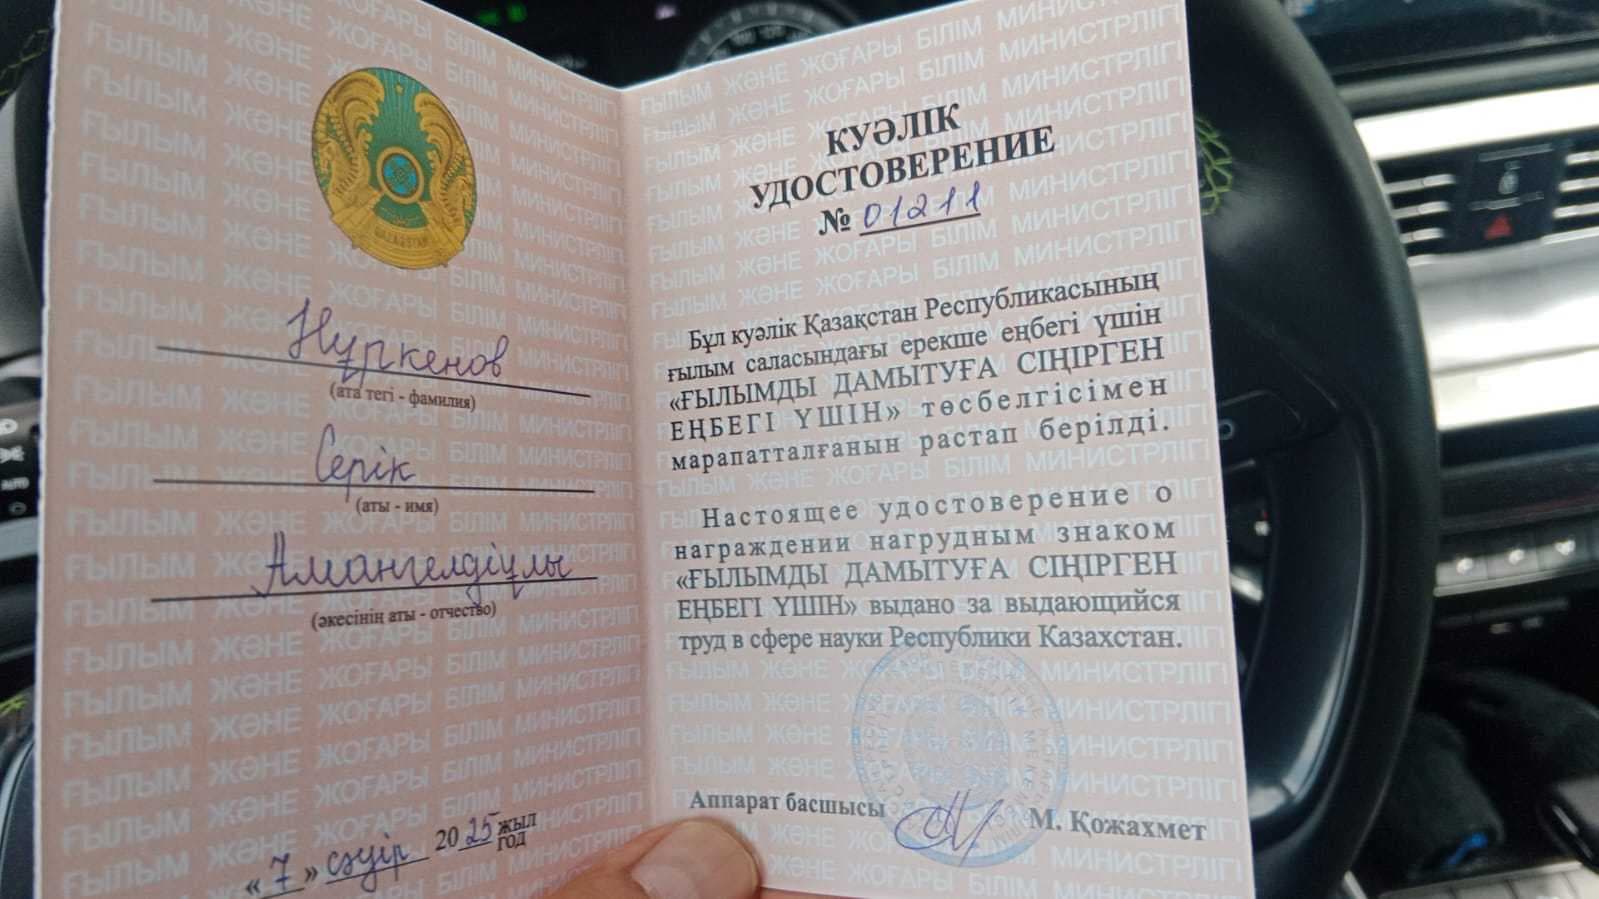 QAZAQSTAN
Нұркенов
(ата тегі - фамилия)
Серік
(аты - имя)
Амангелдіұлы
(әкесінің аты - отчество)
«7» сәуір 2025 жыл
год
КУӘЛІК
УДОСТОВЕРЕНИЕ
№ 01211
Бұл куәлік Қазақстан Республикасының
ғылым саласындағы ерекше еңбегі үшін
«ҒЫЛЫМДЫ ДАМЫТУҒА СІҢІРГЕН
ЕҢБЕГІ ҮШІН» төсбелгісімен
марапатталғанын растап берілді.
Настоящее удостоверение о
награждении нагрудным знаком
«ҒЫЛЫМДЫ ДАМЫТУҒА СІҢІРГЕН
ЕҢБЕГІ ҮШІН» выдано за выдающийся
труд в сфере науки Республики Казахстан.
Аппарат басшысы М. Қожахмет
ҒЫЛЫМ ЖӘНЕ ЖОҒАРЫ БІЛІМ МИНИСТРЛІГІ
AUTO